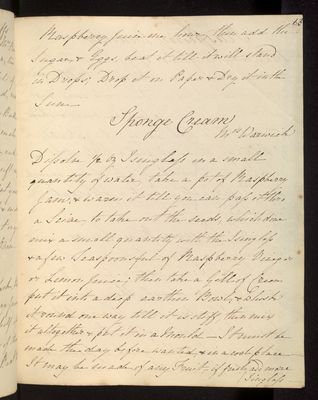 63
Raspberry Juice one hour, then add the
Sugar, & Eggs beat it till it will stand
in Drops, Drop it on Paper & Dry it in the
Sun
Sponge Cream
Mrs Warwick
Dissolve oz Isinglass in a small
quantity of water take a pot of Raspberry
Jam, & warm it till you can pass it thro
a Seive to take out the seeds, which done
mix a small quantity with the Isinglass
& a few Teaspoonsful of Raspberry Vinegar
or Lemon Juice, then take a of Cream
put it into a deep earthen Bowl, & Whisk
it round one way till it is stiff then mix
it altogether & put it in a Mould — It must be
made the day before wanted, & in a cool place —
It may be made of any Fruit, if fresh add more
Isinglass